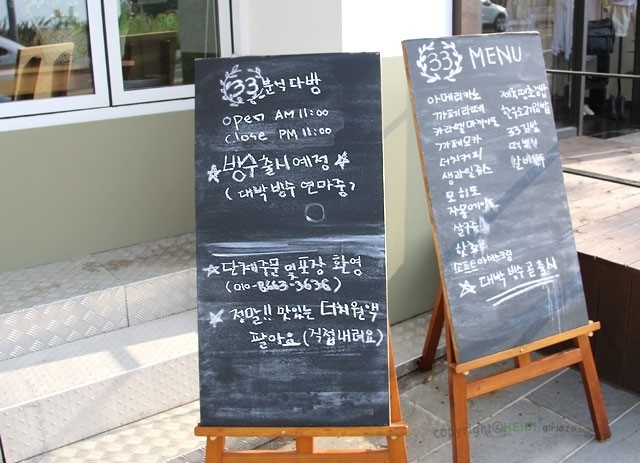 33 분식다방
open AM 11:00
close PM 11:00
☆ 빙수 출시예정 ☆
(대박 빙수 연마중)
☆ 단체주문 및 포장 환영
(010-8663-3636)
☆ 정말!! 맛있는 더치원액
팔아요 (직접내려요)
33 MENU
아메리카노
카페라떼
카라멜마끼아또
카페모카
더치커피
생과일쥬스
모히또
자몽에이드
살구쥬스
한라봉
소프트아이스크림
☆ 대박 빙수 곧 출시
33김밥
떡볶이
copyright@HEIDI.gifiazu